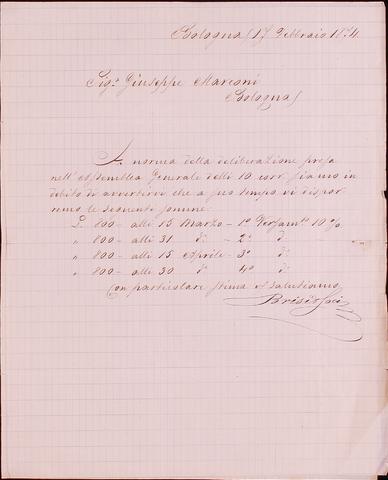 Bologna 17 Febbraio 1874.
Sigr. Giuseppe Marconi
Bologna
A norma della deliberazione presa
nell'Assemblea Generale delli 10 corr. siamo in
debito di avvertirvi che a suo tempo vi dispor
remo le seguenti somme.
L. 800 - alli 15 Marzo - 1o Versamto. 10%
" 800 - alli 31 do. - 2o do.
" 800 - alli 15 Aprile - 3o do.
" 800 - alli 30 do. 4o do.
Con particolare stima vi salutiamo